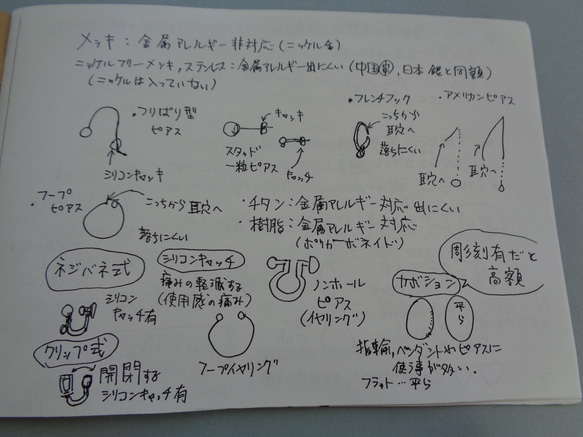 メッキ：金属アレルギー非対応（ニッケル含）
ニッケルフリーメッキ，ステンレス：金属アレルギー出にくい（中国，日本 銀と同額）
（ニッケルは入っていない）
・つりばり型
ピアス
シリコンキャッチ
キャッチ
スタッド
一粒ピアス
キャッチ
・フレンチフック
こっちから
耳穴へ
落ちにくい
・アメリカンピアス
耳穴へ
耳穴へ
・フープ
ピアス
こっちから 耳穴へ
落ちにくい
・チタン：金属アレルギー対応 出にくい
・樹脂：金属アレルギー対応
（ポリカーボネイト）
ネジバネ式
シリコン
キャッチ有
シリコンキャッチ
痛みの軽減する
（使用感の痛み）
ノンホール
ピアス
（イヤリング）
彫刻有だと
高額
カボション
平ら
クリップ式
開閉する
シリコンキャッチ有
フープイヤリング
指輪，ペンダントやピアスに
使う事が多い．
フラット…平ら